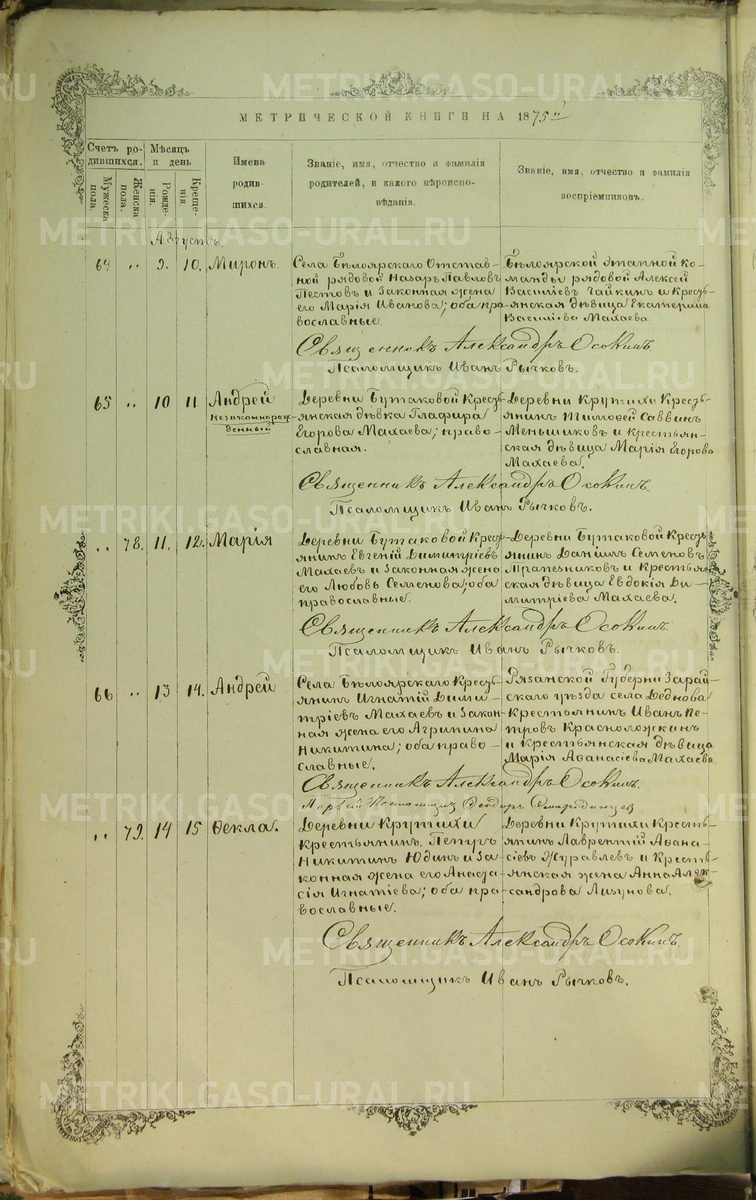 МЕТРИЧЕСКОЙ КНИГИ НА 1875й
Счетъ ро-
дившихся.
Мужеска
пола.
Женска
пола.
Мѣсяцъ
и день
Рожде-
нія.
Креще-
нія
Имена
родив-
шихся.
Званіе, имя, отчество и фамилія
родителей, и какого вѣроиспо-
вѣданія.
Званіе, имя, отчество и фамилія
воспріемниковъ.
Августъ.
64 " 9. 10. Миронъ.
Села Бѣлоярскаго Отстав-
ной рядовой Назаръ Павловъ
Пестовъ и законная жена
его Марія Иванова; оба пра-
вославные.
Бѣлоярской этапной ко-
манды рядовой Алексѣй
Василіевъ Чайкинъ и Кресть-
янская дѣвица Екатерина
Василіева Махаева
Священникъ Александръ Осокинъ
Псаломщикъ Иванъ Рычковъ.
65 " 10 11 Андрей
незаконнорож-
денный
Деревни Бутаковой Кресть-
янская дѣвка Глафира
Егорова Махаева; право-
славная.
Деревни Крутихи Кресть-
янинъ Тимофей Саввинъ
Меньшиковъ и крестьян-
ская дѣвица Марія Егорова
Махаева.
Священникъ Александръ Осокинъ.
Псаломщикъ Иванъ Рычковъ.
" 78. 11. 12. Марія
Деревни Бутаковой Крест-
янинъ Евгеній Димитріевъ
Махаевъ и законная жена
его Любовь Семенова; оба
православные.
Деревни Бутаковой Кресть-
янинъ Даніилъ Семеновъ
Трапезниковъ и Крестьян-
ская дѣвица Евдокія Ди-
митріева Махаева.
Священникъ Александръ Осокинъ.
Псаломщикъ Иванъ Рычковъ.
66 " 13 14. Андрей
Села Бѣлоярскаго Кресть-
янинъ Игнатій Дими-
тріевъ Махаевъ и закон-
ная жена его Агрипина
Никитина; оба право-
славные.
Рязанской Губерни Зарай-
скаго уѣзда села Деднова
Крестьянинъ Иванъ Пе-
тровъ Красноложкинъ
и крестьянская дѣвица
Марія Аѳанасіева Махаева
Священникъ Александръ Осокинъ.
" 79. 14 15 Ѳекла.
Деревни Крутихи
крестьянинъ Петръ
Никитинъ Юдинъ и за-
конная жена его Анаста-
сія Игнатіева; оба пра-
вославные.
Деревни Крутихи Кресть-
янинъ Лаврентій Аѳана-
сіевъ Журавлевъ и Кресть-
янская жена Анна Алек-
сандрова Лизунова.
Священникъ Александръ Осокинъ.
Псаломщикъ Иванъ Рычковъ.
METRIKI.GASO-URAL.RU